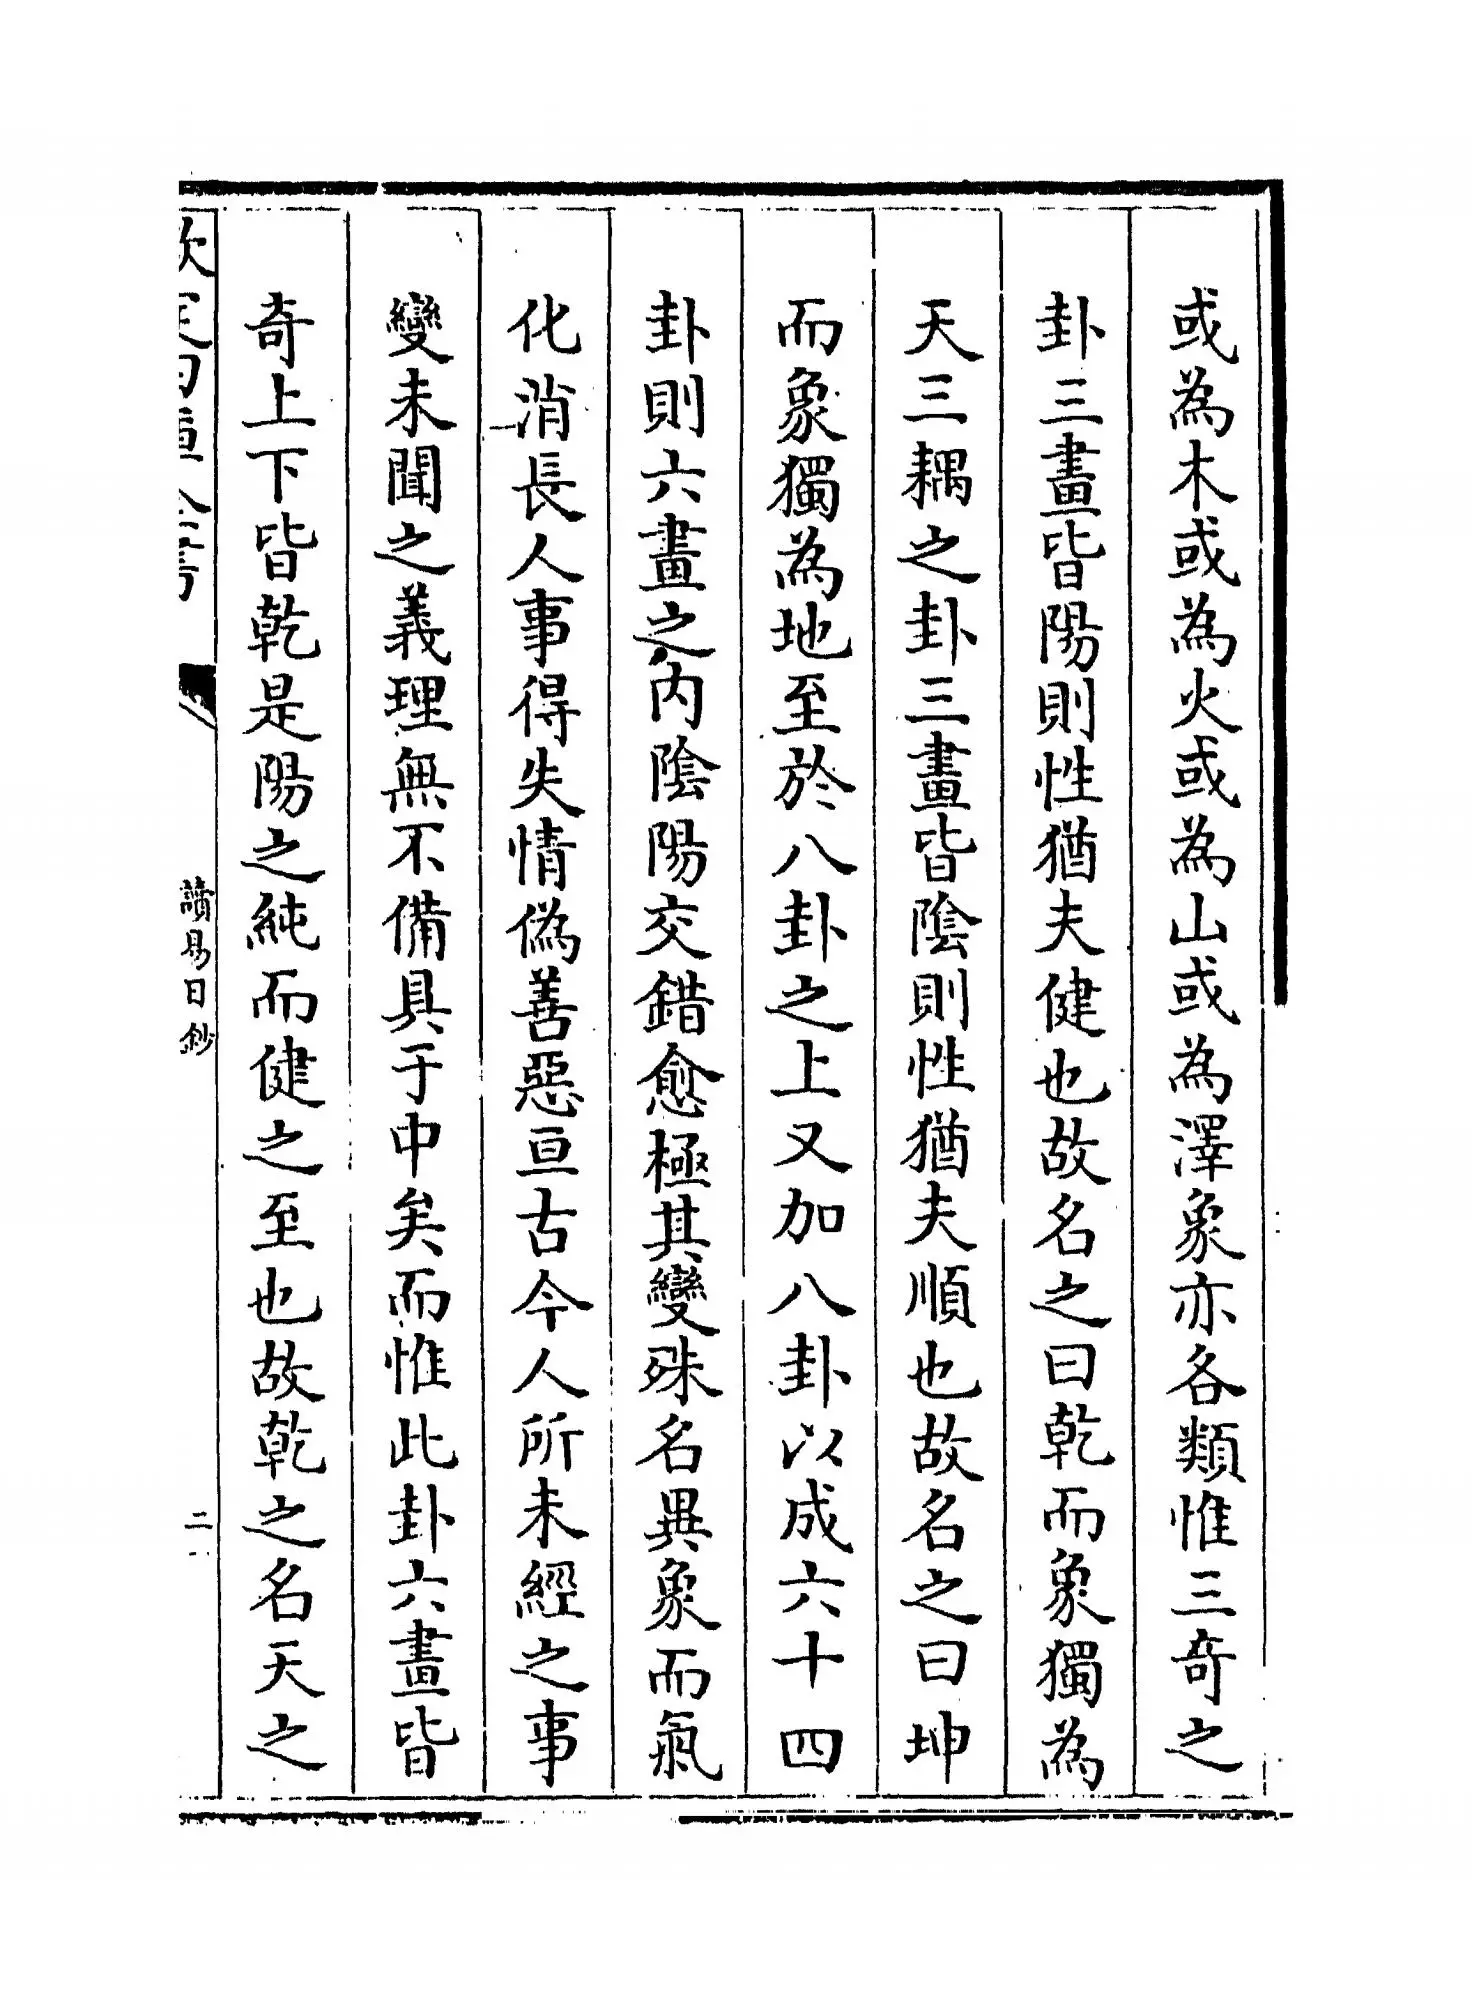 或為木或為火或為山或為澤象亦各類惟三奇之
卦三畫皆陽則性猶夫健也故名之曰乾而象獨為
天三耦之卦三畫皆陰則性猶夫順也故名之曰坤
而象獨為地至於八卦之上又加八卦以成六十四
卦則六畫之內陰陽交錯愈極其變殊名異象而氣
化消長人事得失情偽善惡亘古今人所未經之事
變未聞之義理無不備具于中矣而惟此卦六畫皆
奇上下皆乾是陽之純而健之至也故乾之名天之
欽定四庫全書
讀易日鈔
二